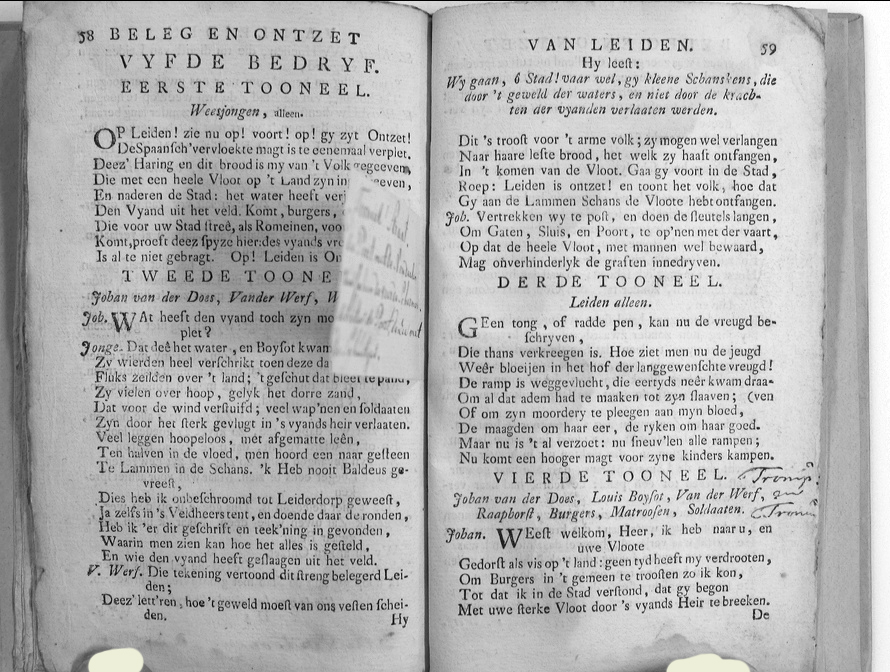 58 BELEG EN ONTZET
VYFDE BEDRYF.
EERSTE TOONEEL.
Weesjongen, alleen.
OP Leiden! zie nu op! voort! op! gy zyt Ontzet!
De Spaansch' vervloekte magt is te eenemaal verplet.
Deez' Haring en dit brood is my van 't Volk gegeeven,
Die met een heele Vloot op 't Land zyn in
En naderen de Stad: het water heeft
Den Vyand uit het veld. Komt, burgers,
Die voor uw Stad streê, als Romeinen, voo
Komt, proeft deez spyze hier: des vyands
Is al te niet gebragt. Op! Leiden is
TWEEDE TOONE
Johan van der Does, Vander Werf,
Joh. WAt heeft den vyand toch zyn mo
plet?
Jonge. Dat deê het water, en Boysot kwam
Zy wierden heel verschrikt toen deze da
Fluks zeilden over 't land; 't geschut dat bleef te pand,
Zy vielen over hoop, gelyk het dorre zand,
Dat voor de wind verstuifd; veel wap'nen en soldaaten
Zyn door het sterk gevlugt in 's vyands heir verlaaten.
Veel leggen hoopeloos, met afgematte leên,
Ten halven in de vloed, men hoord een naar gesteen
Te Lammen in de Schans. 'k Heb nooit Baldeus ge-
vreest,
Dies heb ik onbeschroomd tot Leiderdorp geweest,
Ja zelfs in 's Veldheers tent, en doende daar de ronden,
Heb ik 'er dit geschrift en teek'ning in gevonden,
Waarin men zien kan hoe het alles is gesteld,
En wie den vyand heeft geslaagen uit het veld.
V. Werf. Die tekening vertoond dit streng belegerd Lei-
den;
Deez' lett'ren, hoe 't geweld moest van ons vesten schei-
den.
Hy
VAN LEIDEN. 59
Hy leest:
Wy gaan, ô Stad! vaar wel, gy kleene Schanskens, die
door 't geweld der waters, en niet door de krach-
ten der vyanden verlaaten werden.
Dit 's troost voor 't arme volk; zy mogen wel verlangen
Naar haare leste brood, het welk zy haast ontfangen,
In 't komen van de Vloot. Gaa gy voort in de Stad,
Roep: Leiden is ontzet! en toont het volk, hoe dat
Gy aan de Lammen Schans de Vloote hebt ontfangen.
Joh. Vertrekken wy te post, en doen de sleutels langen,
Om Gaten, Sluis, en Poort, te op'nen met der vaart,
Op dat de heele Vloot, met mannen wel bewaard,
Mag onverhinderlyk de graften innedryven.
DERDE TOONEEL.
Leiden alleen.
GEen tong, of radde pen, kan nu de vreugd be-
schryven,
Die thans verkreegen is. Hoe ziet men nu de jeugd
Weêr bloeijen in het hof der langgewenschte vreugd!
De ramp is weggevlucht, die eertyds neêr kwam draa-
Om al dat adem had te maaken tot zyn slaaven; (ven
Of om zyn moordery te pleegen aan myn bloed,
De maagden om haar eer, de ryken om haar goed.
Maar nu is 't al verzoet: nu sneuv'len alle rampen;
Nu komt een hooger magt voor zyne kinders kampen.
VIERDE TOONEEL.
Johan van der Does, Louis Boysot, Van der Werf,
Raaphorst, Burgers, Matroosen, Soldaaten.
Johan. WEest welkom, Heer, ik heb naar u, en
uwe Vloote
Gedorst als vis op 't land: geen tyd heeft my verdrooten,
Om Burgers in 't gemeen te troosten zo ik kon,
Tot dat ik in de Stad verstond, dat gy begon
Met uwe sterke Vloot door 's vyands Heir te breeken.
De